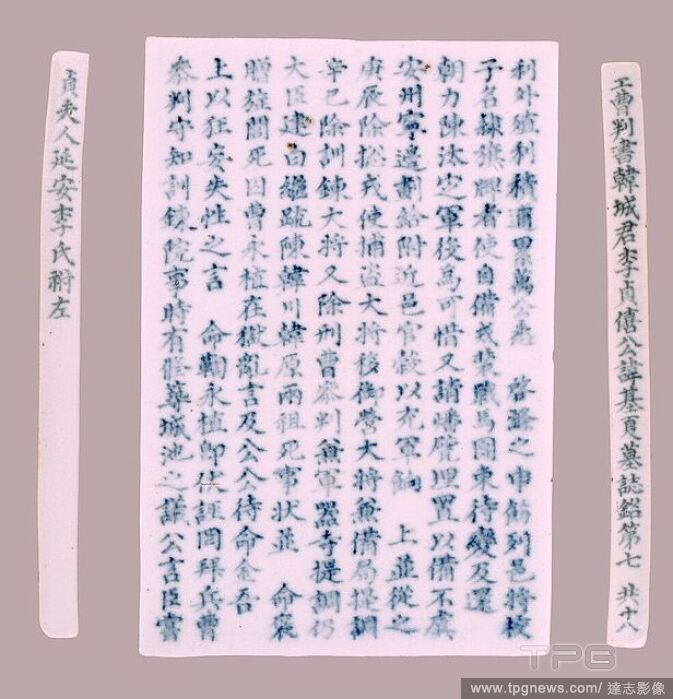 工曹判書韓城君李貞僖公諱基夏墓誌銘第七 共十八
利外殖利積逋累萬公悉 啓蠲之申飭列邑將校
子名隷旗牌者使自備戎裝戰馬團束待變及還
朝力陳汰定軍役爲可惜又請燔甓埋置以備不虞
安州寧邊劃給附近邑官穀以充軍餉 上並從之
庚辰除捴戎使捕盜大將移御營大將兼備局提調
辛巳除訓鍊大將又除刑曹參判兼軍器寺提調
大臣建白繼疏陳韓川韓原兩祖死事状並 命褒
贈旌閭死囚曹永植在獄亂言及公公待命金吾
上以狂妄失性之言 命鞫永植即伏誣罔拜兵曹
參判守知訓鍊院事時有修葬城池之議公言臣嘗
貞夫人延安李氏祔左
TPG
www.tpgnews.com/達志影像